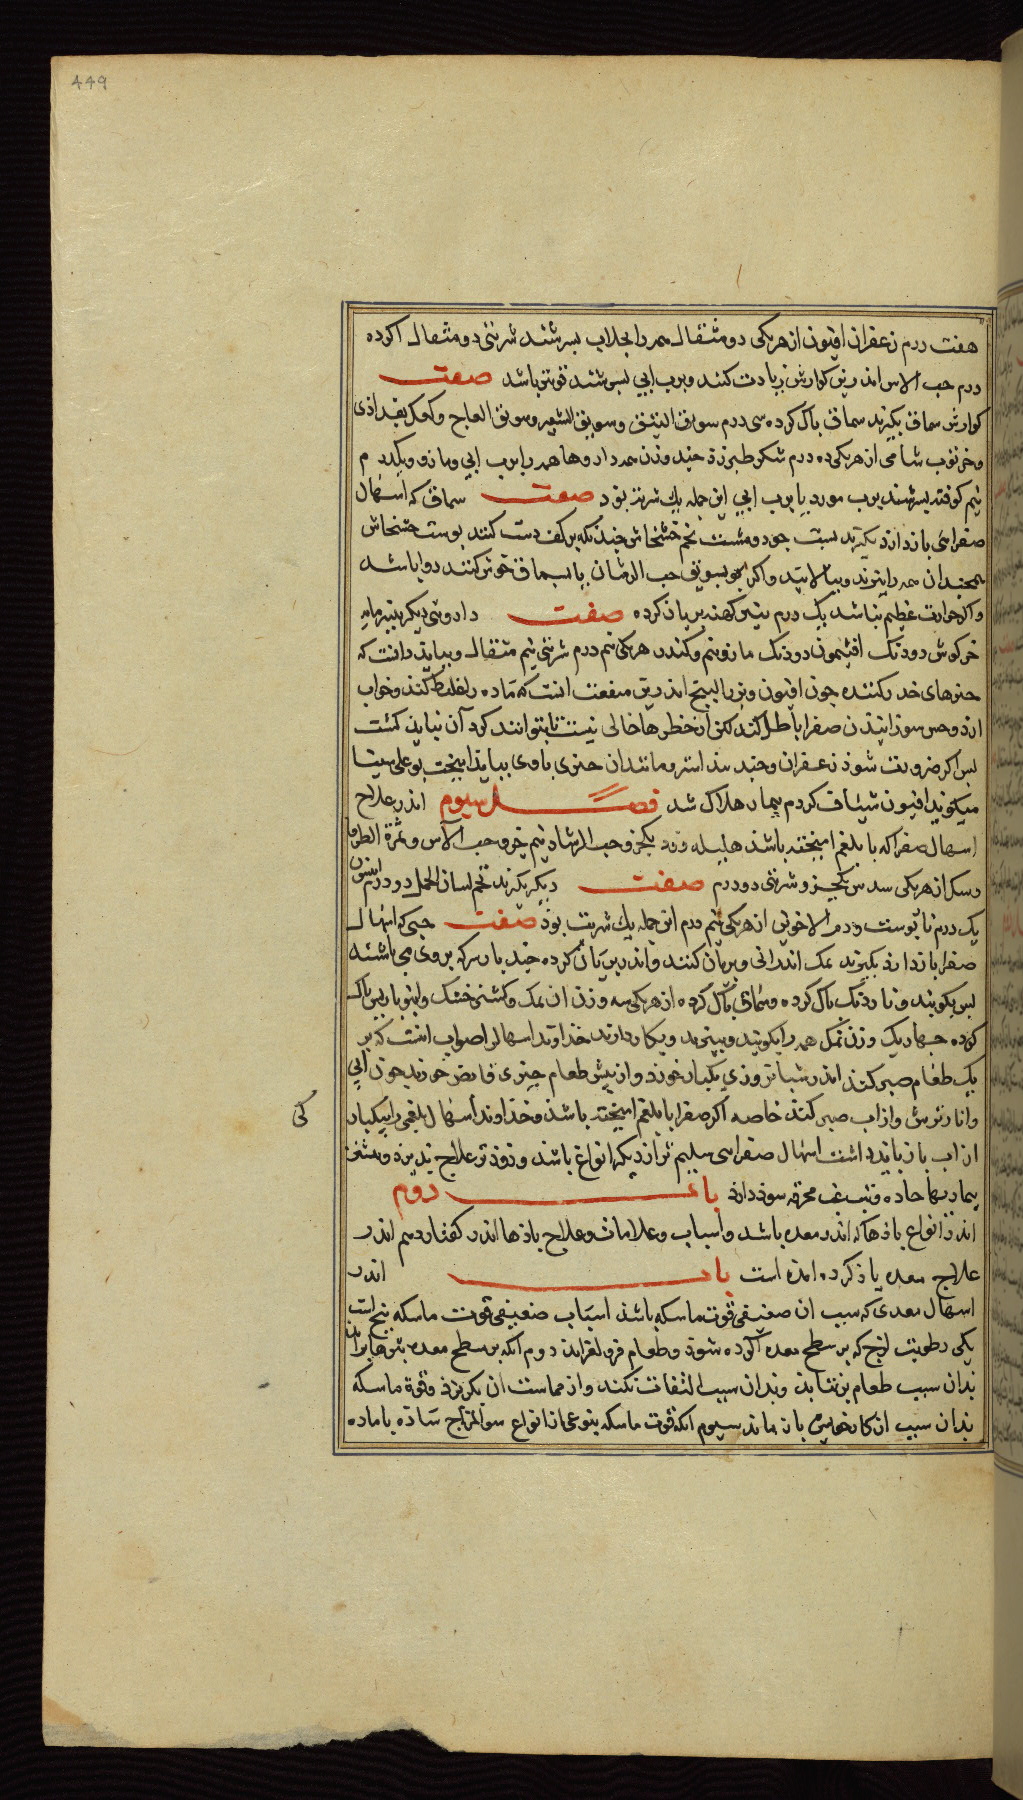 ۴۴۹
هفت درم زعفران افیون از هریکی دو مثقال همه را بجلاب بسرشند شربتی دو مثقال اکر ده
درم حب الاس اندرین کوارش زیادت کنند و برب ابی بسرشند قویتر باشد صفت
کوارش سماق بکیرند سماق باک کرده سی درم سویق النبق و سویق الشعیر و سویق و کعک بغدادی
و خرنوب شامی از هریکی ده درم شکر طبرزد جند وزن همه داروها همه را برب ابی و مازو و یکدرم
نیم کوفته بسرشند برب مورد یا برب ابی این جمله یک شربت بود صفت سماق که اسهال
صفرائی بازدارد بکیرند بست جو دو مشت تخم خشخاش جندانکه بر کف دست کنند بوست خشخاش
همجندان همه را بپزند و ببالایند و اکر بسویق حب الرمان یا بسماق خوش کنند روا باشد
و اکر حرارت عظیم نباشد یک درم بنیر کهنه بریان کرده صفت داروئی دیکر بنیرمایه
خرکوش دودنک افیون دودنک مازو نیم و کندر هریکی نیم درم شربتی نیم مثقال و بباید دانست که
جیزهای خدر کننده جون افیون و بزر البنج اندرین منفعت انست که ماده را غلیظ کند و خواب
ارد و حس سوزانیدن صفرا باطل کند لکن از خطرها خالی نیست تا بتوانند کرد آن نباید کشت
بس اکر ضرورت شوذ زعفران و جند بیدستر و مانند ان جیزی با وی بباید امیخت بوعلی سینا
میکوید افیون شیاف کردم بیمار هلاک شد فصل سیوم اندر علاج
اسهال صفرا که با بلغم امیخته باشد هلیله زرد یکجزو حب الرشاد نیم جزو حب الآس و ثمرة الطرفا
و سک از هریکی سدس یکجزو شربتی دو درم صفت دیکر بکیرند تخم لسان الحمل دو درم انیسون
یک درم نار بوست و دم الاخوین از هریکی نیم درم این جمله یک شربت بود صفت حبی که اسهال
صفرا بازدارد بکیرند نمک اندرانی و بریان کنند و اندرین بریان کرده جند بار سرکه بر وی می باشند
بس بکوبند و ناردنک باک کرده و سماق باک کرده از هریکی سه وزن ان نمک و کشنیز خشک و انبرباریس باک
کرده جهاریک وزن نمک همه را بکوبند و ببیزند و بکار دارند خداوند اسهال را صواب انست که بر
یک طعام صبر کند اندر شبانروزی یکبار خورد و از بیش طعام جیزی قابض خورند جون ابی
و انار ترش و از اب صبر کند خاصه اکر صفرا با بلغم امیخته باشد و خداوند اسهال بلغمی را بیکبار
از اب باز باید داشت اسهال صفرائی سلیم تر از دیکر انواع باشد و زودتر علاج بذیرد و بیشتر
بیماریها حاده و تب غب محرقه سود دارد باب دوم
اندر انواع بادها که اندر معده باشد و اسباب و علامات و علاج بادها اندر کفتار دهم اندر
علاج معده یاد کرده امده است باب اندر
اسهال معدی که سبب ان ضعیفی قوت ماسکه باشد اسباب ضعیفی قوت ماسکه بنج است
یکی رطوبت لزج که بر سطح معده آلوده شود و طعام فرو لغزاند دوم انکه بر سطح معده بثرها براید
بدان سبب طعام برنتابد و بدان سبب التفات نکند و از مماست ان بکریزد و قوة ماسکه
بدان سبب از کار خویش باز ماند سیوم انکه قوت ماسکه بنوعی از انواع سوء المزاج ساده با ماده
کی